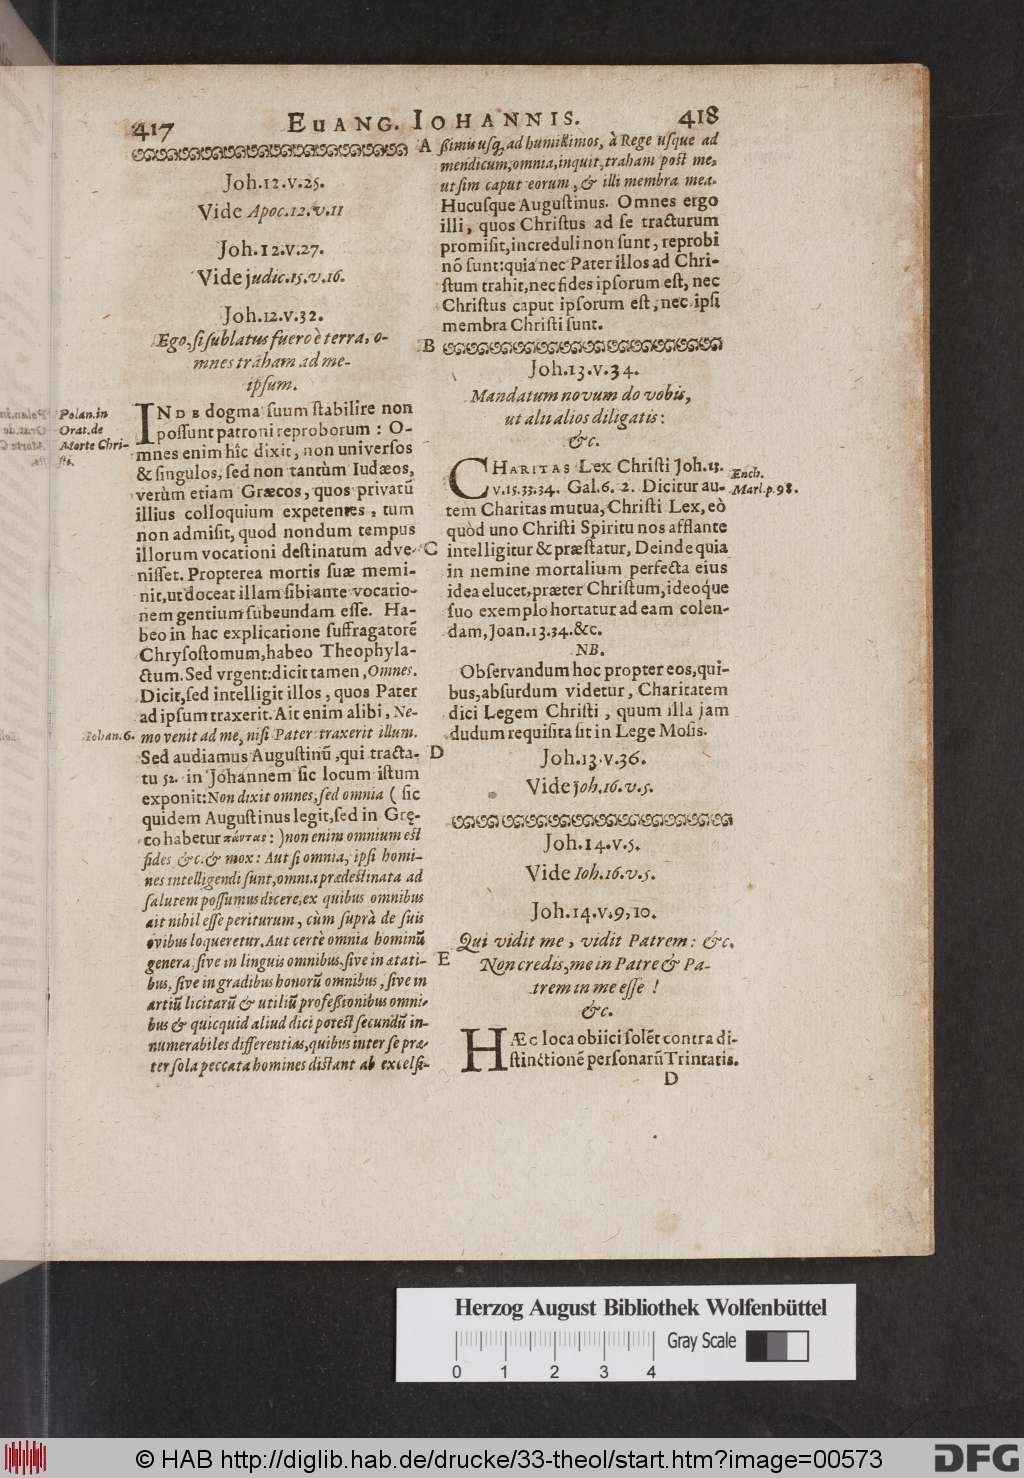 417 EUANG. IOHANNIS. 418
Joh.12.v.25.
Vide Apoc.12.v.11
Joh.12.v.27.
Vide judic.15.v.16.
Joh.12.v.32.
Ego, si sublatus fuero è terra, o-
mnes traham ad me-
ipsum.
Polan.in
Orat.de
Morte Chri-
sti.
INDE dogma suum stabilire non
possunt patroni reproborum : O-
mnes enim hîc dixit, non universos
& singulos, sed non tantùm Iudæos,
verùm etiam Græcos, quos privatū
illius colloquium expetentes, tum
non admisit, quod nondum tempus
illorum vocationi destinatum adve-
nisset. Propterea mortis suæ memi-
nit, ut doceat illam sibi ante vocatio-
nem gentium subeundam esse. Ha-
beo in hac explicatione suffragatorē
Chrysostomum, habeo Theophyla-
ctum. Sed vrgent: dicit tamen, Omnes.
Dicit, sed intelligit illos, quos Pater
ad ipsum traxerit. Ait enim alibi, Ne-
Iohan.6. mo venit ad me, nisi Pater traxerit illum.
Sed audiamus Augustinū, qui tracta-
tu 52. in Johannem sic locum istum
exponit: Non dixit omnes, sed omnia ( sic
quidem Augustinus legit, sed in Grę-
co habetur πάντας : ) non enim omnium est
fides &c. & mox : Aut si omnia, ipsi homi-
nes intelligendi sunt, omnia prædestinata ad
salutem possumus dicere, ex quibus omnibus
ait nihil esse periturum, cùm suprà de suis
ovibus loqueretur. Aut certè omnia hominū
genera, sive in linguis omnibus, sive in ætati-
bus, sive in gradibus honorū omnibus, sive in
artiū licitarū & utiliū professionibus omni-
bus & quicquid aliud dici potest secundū in-
numerabiles differentias, quibus inter se præ-
ter sola peccata homines distant ab excelsis-
A simis usq; ad humillimos, à Rege usque ad
mendicum, omnia, inquit, traham post me,
ut sim caput eorum, & illi membra mea.
Hucusque Augustinus. Omnes ergo
illi, quos Christus ad se tracturum
promisit, increduli non sunt, reprobi
nō sunt: quia nec Pater illos ad Chri-
stum trahit, nec fides ipsorum est, nec
Christus caput ipsorum est, nec ipsi
membra Christi sunt.
B
Joh.13.v.34.
Mandatum novum do vobis,
ut alii alios diligatis :
&c.
CHARITAS Lex Christi Joh.13.
v.15.33.34. Gal.6. 2. Dicitur au-
Ench.
Marl.p.98.
tem Charitas mutua, Christi Lex, eò
quòd uno Christi Spiritu nos afflante
C intelligitur & præstatur, Deinde quia
in nemine mortalium perfecta eius
idea elucet, præter Christum, ideoq́ue
suo exemplo hortatur ad eam colen-
dam, Joan.13.34.&c.
NB.
Observandum hoc propter eos, qui-
bus, absurdum videtur, Charitatem
dici Legem Christi, quum illa jam
dudum requisita sit in Lege Mosis.
D
Joh.13.v.36.
Vide joh.16.v.5.
Joh.14.v.5.
Vide Ioh.16.v.5.
Joh.14.v.9,10.
Qui vidit me, vidit Patrem : &c.
E Non credis, me in Patre & Pa-
trem in me esse !
&c.
HÆC loca obiici solēt contra di-
stinctionē personarū Trinitatis.
D
Herzog August Bibliothek Wolfenbüttel
Gray Scale
0 1 2 3 4
© HAB http://diglib.hab.de/drucke/33-theol/start.htm?image=00573
DFG